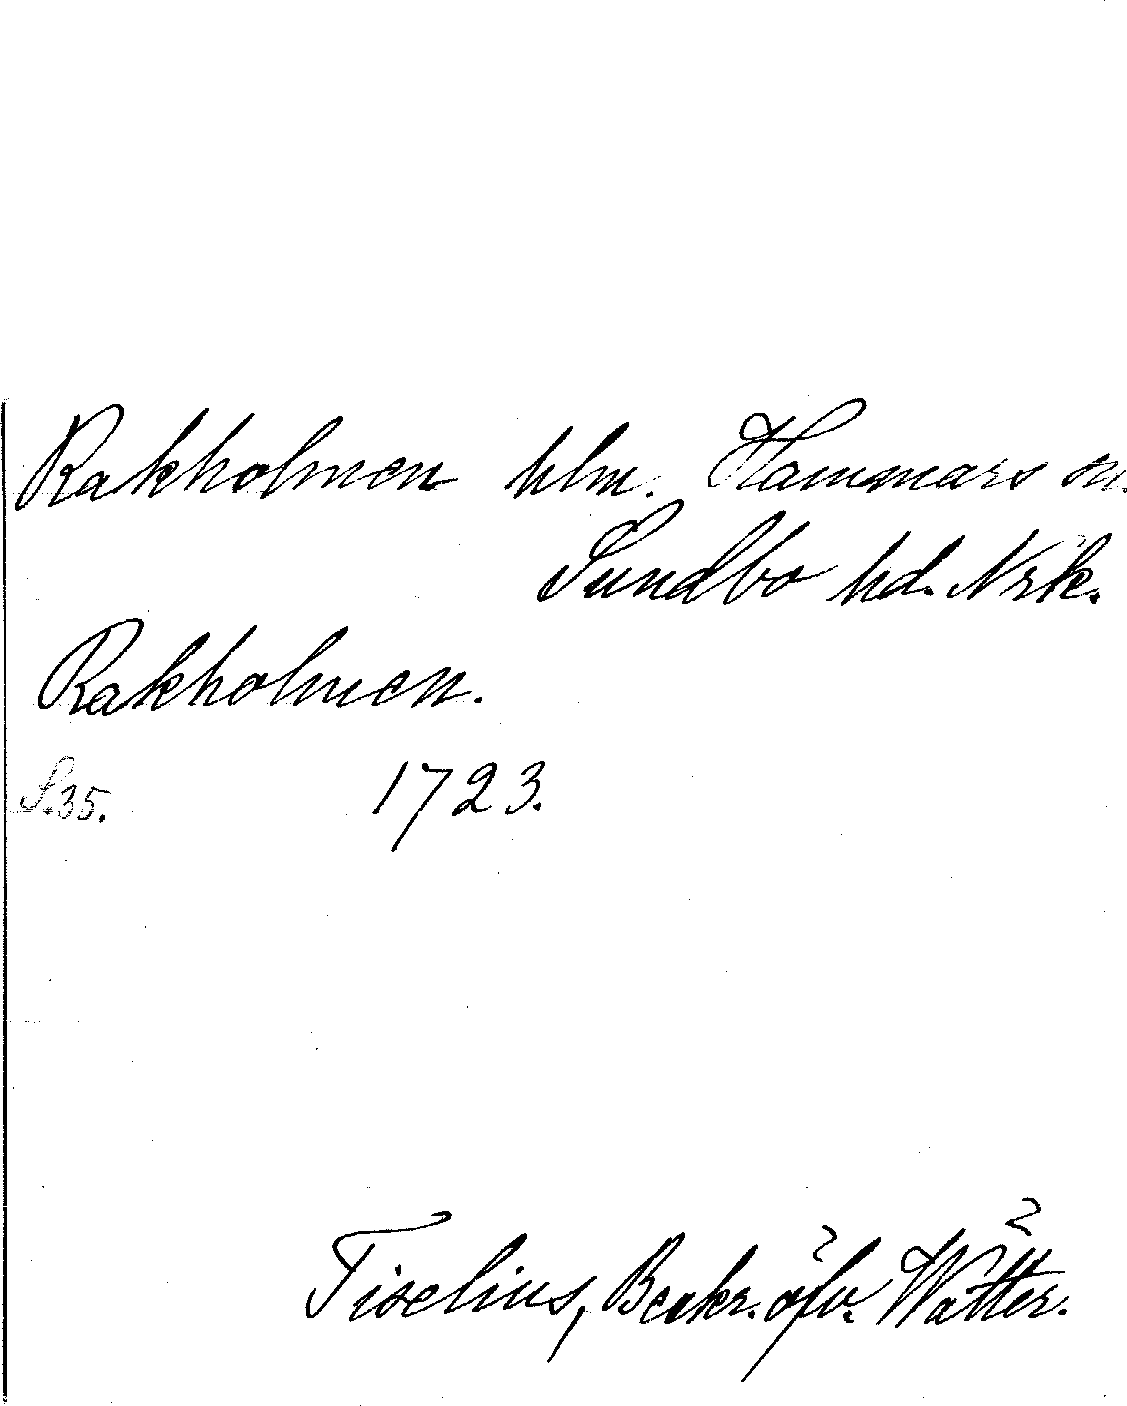 Rakholmen hlm. Hammars sn.
Sundbo hd. Nrk.
Rakholmen.
S. 35. 1723.
Tiselius, Beskr. öfv. Wätter.